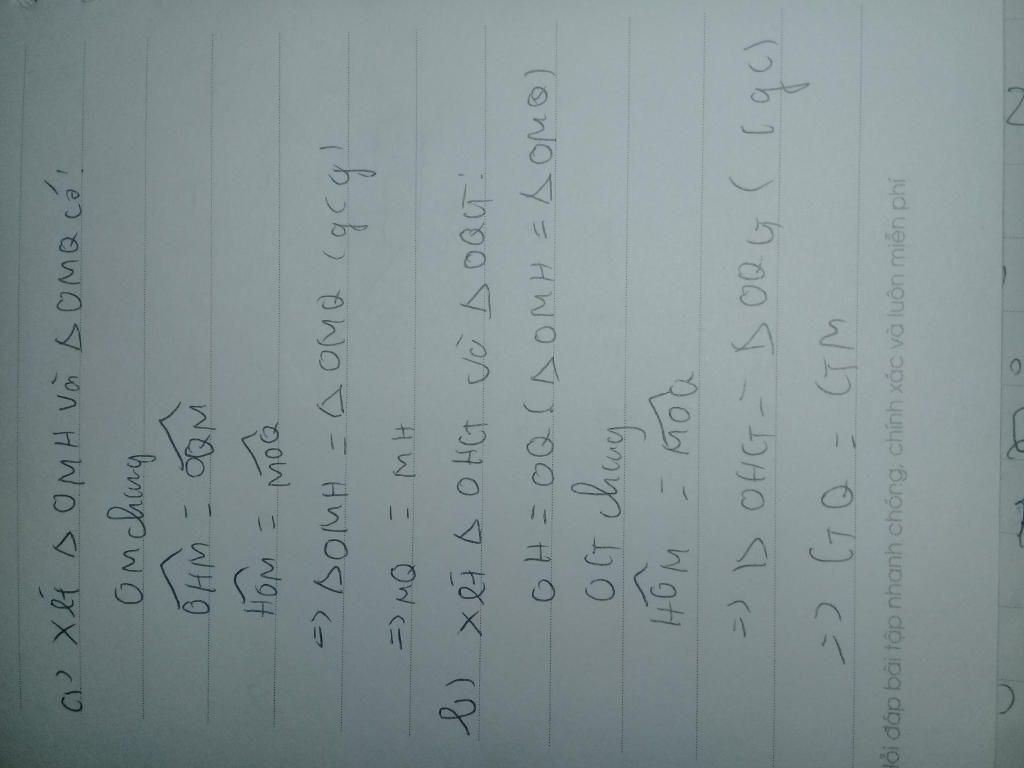 a) Xét Δ OMH và Δ OMQ có:
OM chung
OHM = OQM
HOM = MOQ
=> Δ OMH = Δ OMQ (gcg)
=> MQ = MH
b) Xét Δ OHG và Δ OQG:
OH = OQ (Δ OMH = Δ OMQ)
OG chung
HOM = MOQ
=> Δ OHG = Δ OQG (cgc)
=> GQ = GM
đáp bài tập nhanh chóng, chính xác và luôn miễn phí